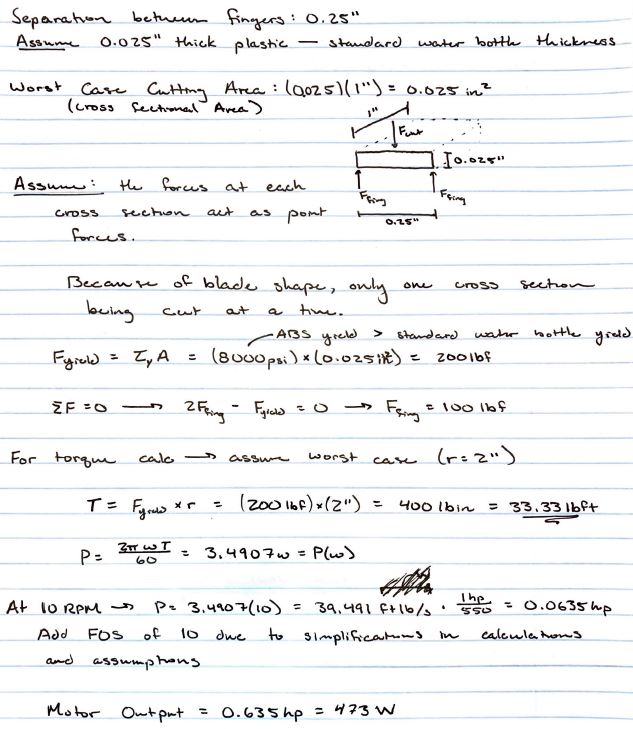 Separation between fingers: 0.25"
Assume 0.025" thick plastic — standard water bottle thickness
Worst Case Cutting Area: (0.025)(1") = 0.025 in²
(Cross Sectional Area)
1"
Fcut
0.025"
Ffing Ffing
0.25"
Assume: the forces at each
cross section act as point
forces.
Because of blade shape, only one cross section
being cut at a time.
ABS yield > standard water bottle yield
Fyield = τy A = (8000psi)×(0.025in²) = 200lbf
ΣF=0 → 2Ffing - Fyield = 0 → Ffing = 100 lbf
For torque calc → assume worst case (r=2")
T = Fyield × r = (200 lbf)×(2") = 400 lbin = 33.33 lbft
P = 2πωT/60 = 3.4907ω = P(ω)
At 10 RPM → P= 3.4907(10) = 39.491 ft lb/s · 1hp/550 = 0.0635hp
Add FOS of 10 due to simplifications in calculations
and assumptions
Motor Output = 0.635hp = 473 W